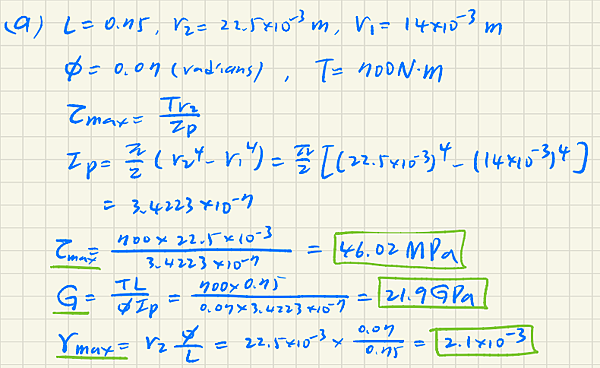 (a) L = 0.75, r₂ = 22.5×10⁻³ m, r₁ = 14×10⁻³ m
ϕ = 0.07 (radians), T = 700 N·m
τmax = Tr₂/Ip
Ip = π/2 (r₂⁴ - r₁⁴) = π/2 [(22.5×10⁻³)⁴ - (14×10⁻³)⁴]
= 3.4223×10⁻⁷
τmax = 700×22.5×10⁻³/3.4223×10⁻⁷ = 46.02 MPa
G = TL/ϕIp = 700×0.75/0.07×3.4223×10⁻⁷ = 21.9 GPa
γmax = r₂ ϕ/L = 22.5×10⁻³ × 0.07/0.75 = 2.1×10⁻³